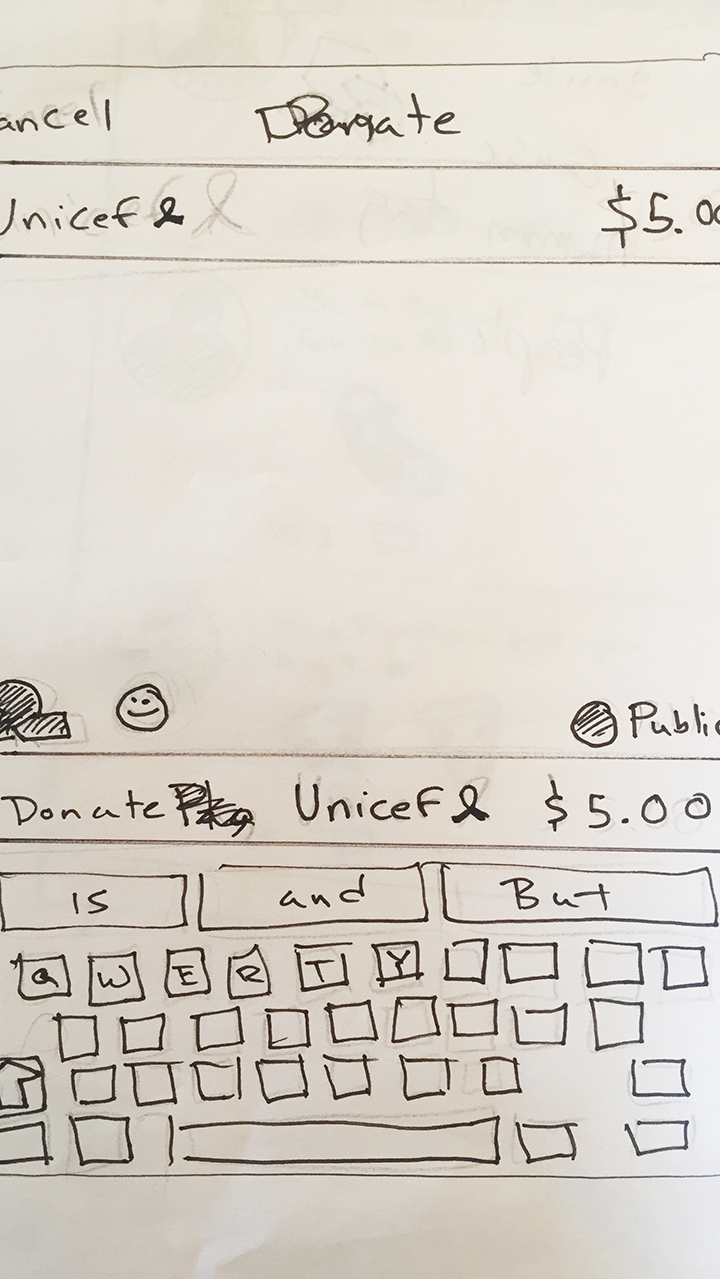 ancell Donate
Unicef $5.00
Public
Donate Unicef $5.00
is and But
Q W E R T Y